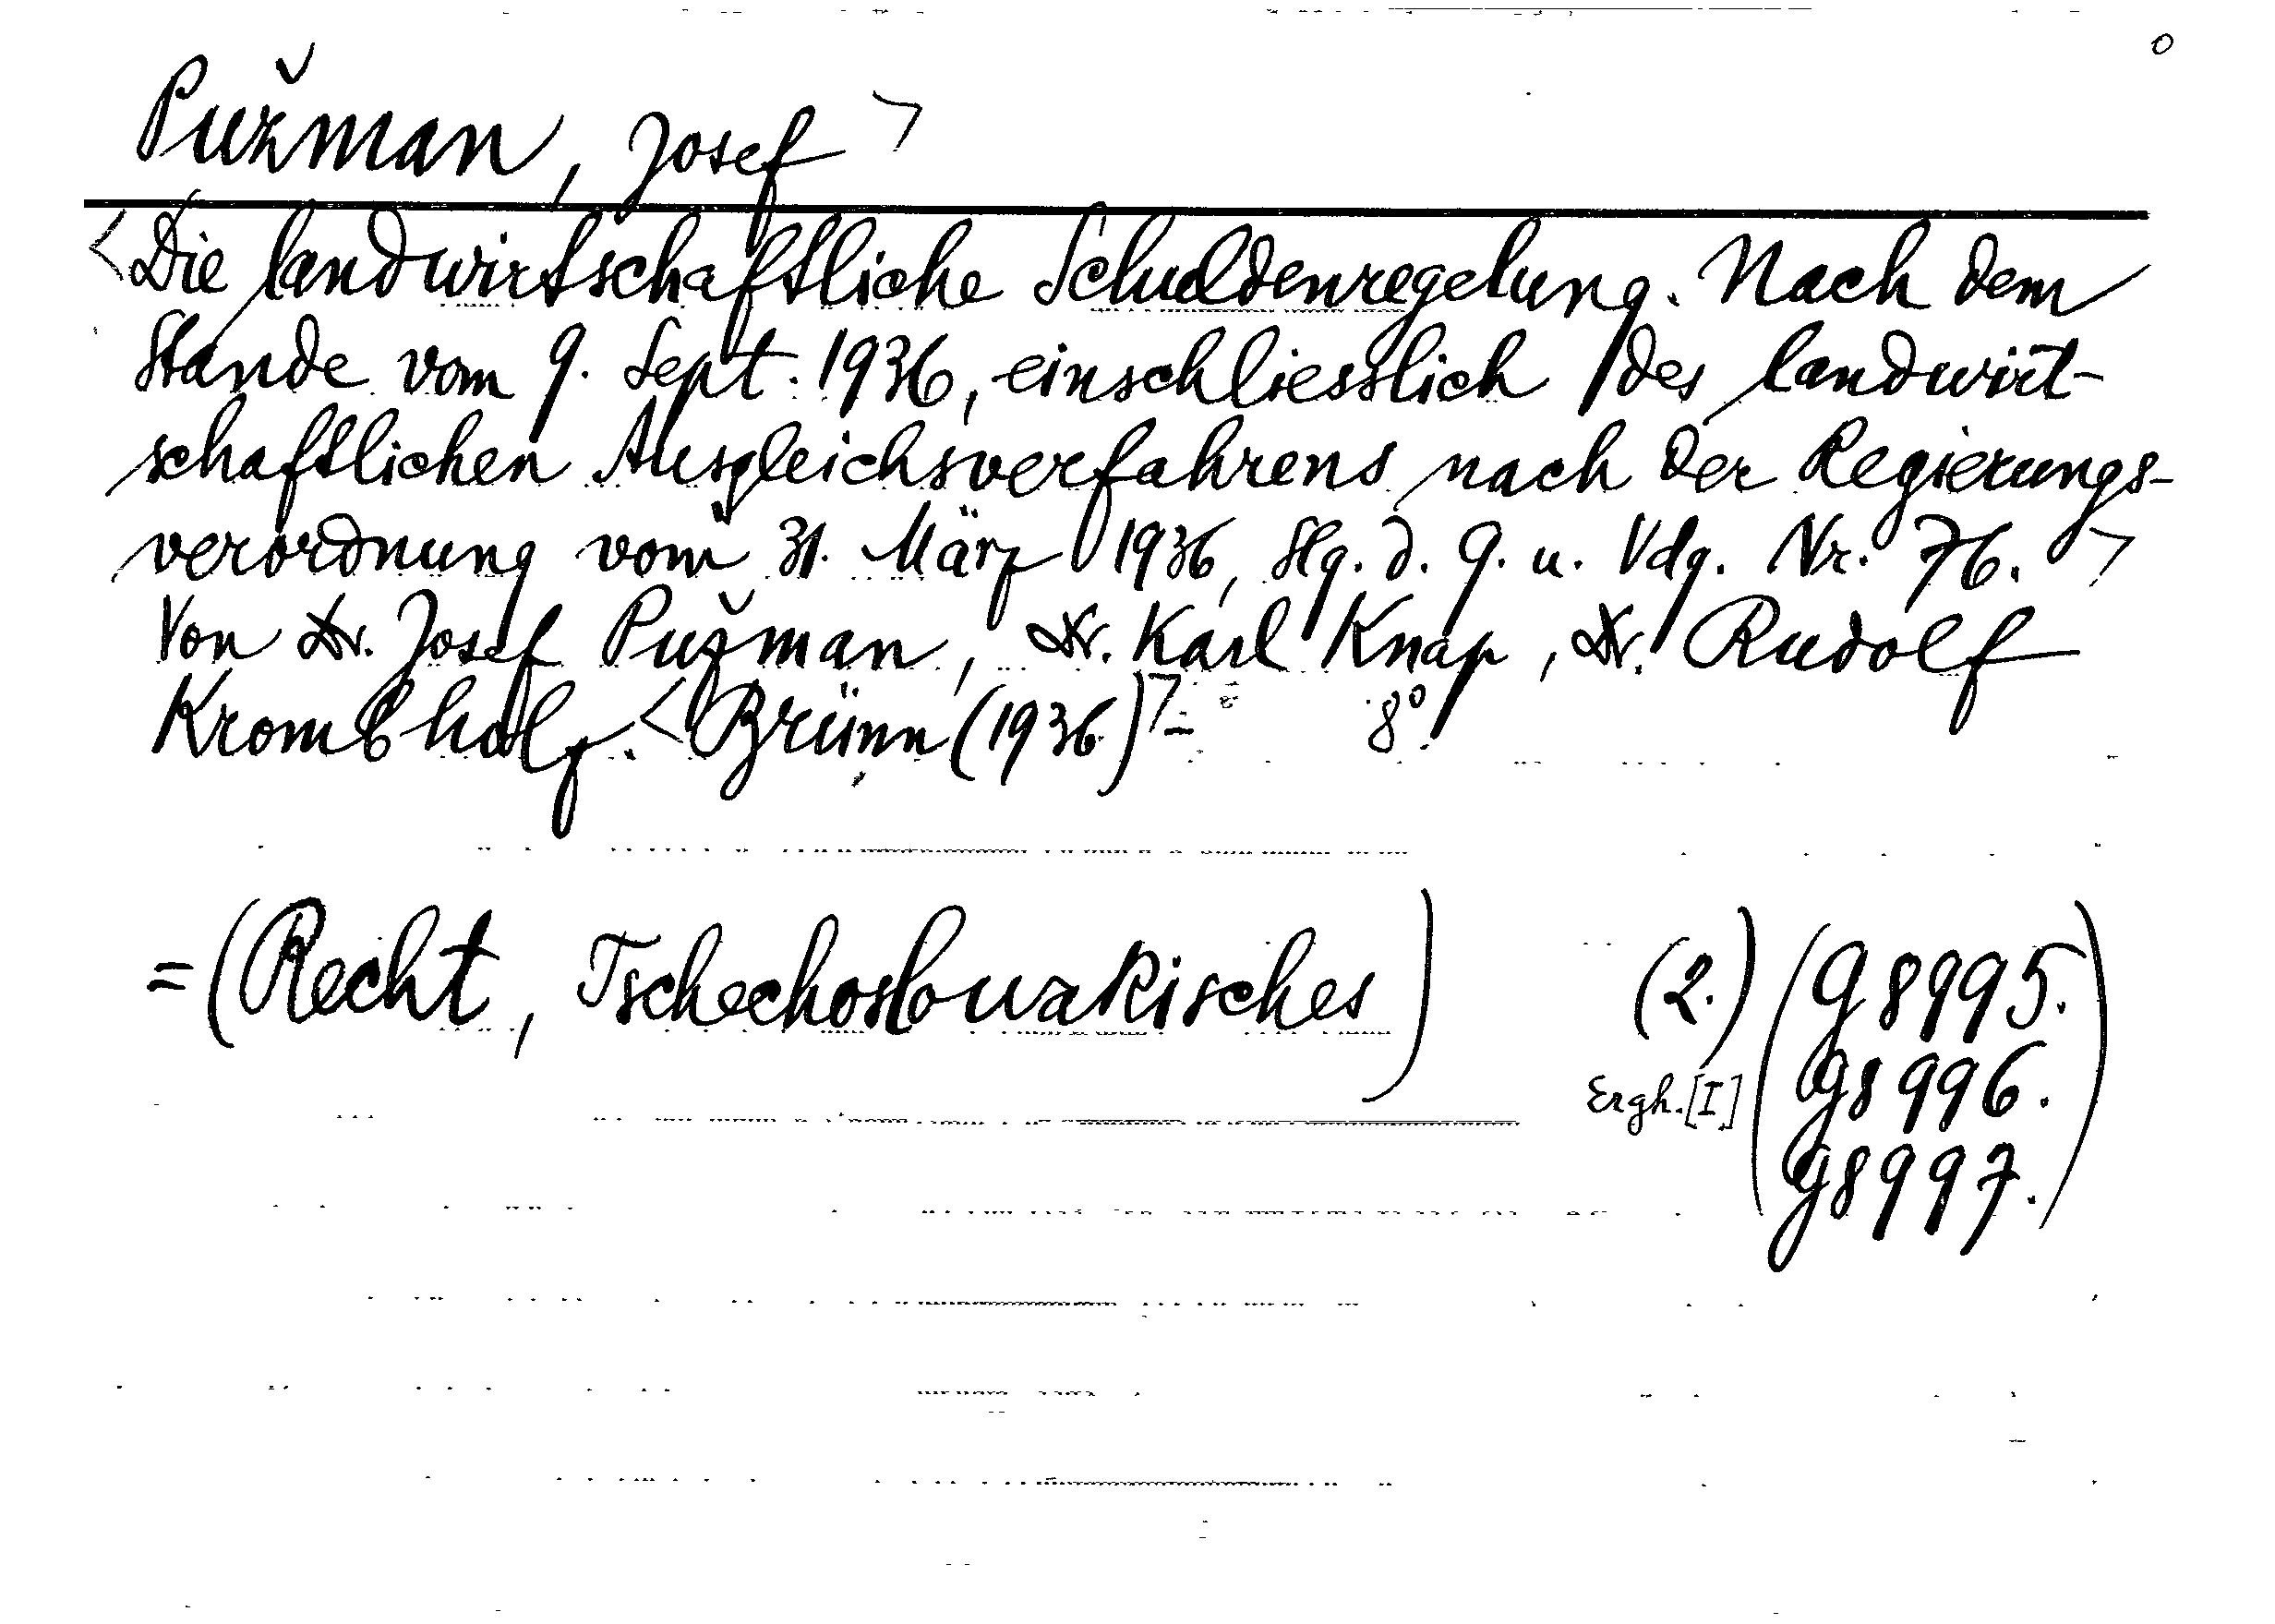 o
Pužman, Josef >
<Die landwirtschaftliche Schuldenregelung. Nach dem
Stande vom 9. Sept. 1936, einschliesslich des landwirt-
schaftlichen Ausgleichsverfahrens nach der Regierungs-
verordnung vom 31. März 1936, Slg. d. G. u. Vdg. Nr. 76.>
Von Dr. Josef Pužman, Dr. Karl Knap, Dr. Rudolf
Krombholz. <Brünn (1936.)>= 8°.
=(Recht, Tschechoslowakisches) (2.) (G 8995.
Ergh.[I] G 8996.
G 8997.)